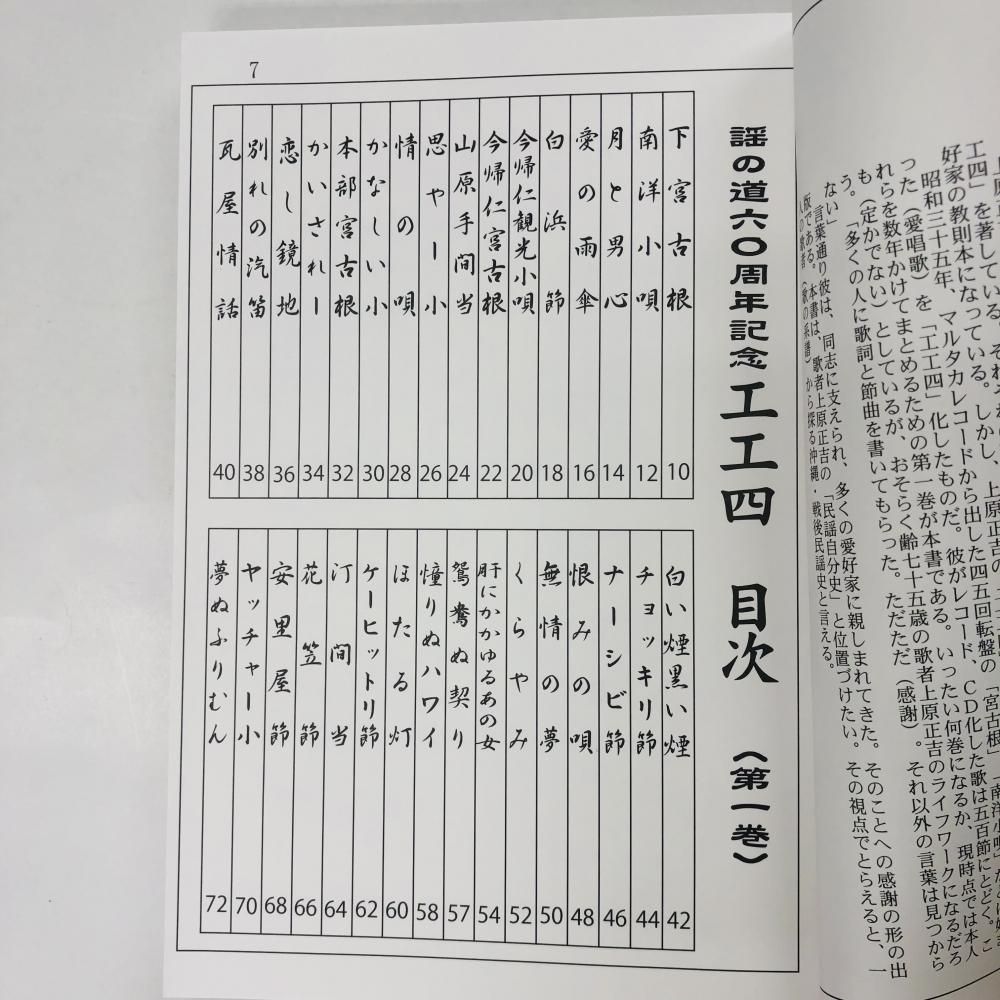 工四」を著している。
好家の教則本になっている。しかし、上原正吉の
昭和三十五年、マルタカレコードから出した四五回転盤の「宮古根」「南洋小唄」
った（愛唱歌）を「工工四」化したものだ。彼がレコード、CD化した歌は五百節にとどく。こ
れらを数年かけてまとめるための第一巻が本書である。いったい何巻になるか、現時点では本人
も（定かでない）としているが、おそらく齢七十五歳の歌者上原正吉のライフワークになるだろ
う。「多くの人に歌詞と節曲を書いてもらった。ただただ（感謝）。それ以外の言葉は見つから
ない」
言葉通り彼は、同志に支えられ、多くの愛好家に親しまれてきた。そのことへの感謝の形の出
版である。本書は、歌者上原正吉の「民謡自分史」と位置づけたい。その視点でとらえると、一
人の歌者（歌の系譜）から探る沖縄・戦後民謡史と言える。
7
謡の道六〇周年記念 工工四 目次 （第一巻）
下宮古根 10
南洋小唄 12
月と男心 14
愛の雨傘 16
白浜節 18
今帰仁観光小唄 20
今帰仁宮古根 22
山原手間当 24
思やー小 26
情の唄 28
かなしい小 30
本部宮古根 32
かいされー 34
恋し鏡地 36
別れの汽笛 38
瓦屋情話 40
白い煙黒い煙 42
チョッキリ節 44
ナーシビ節 46
恨みの唄 48
無情の夢 50
くらやみ 52
肝にかかゆるあの女 54
鴛鴦ぬ契り 57
憧りぬハワイ 58
ほたる灯 60
ケーヒットリ節 62
汀間当 64
花笠節 66
安里屋節 68
ヤッチャー小 70
夢ぬふりむん 72